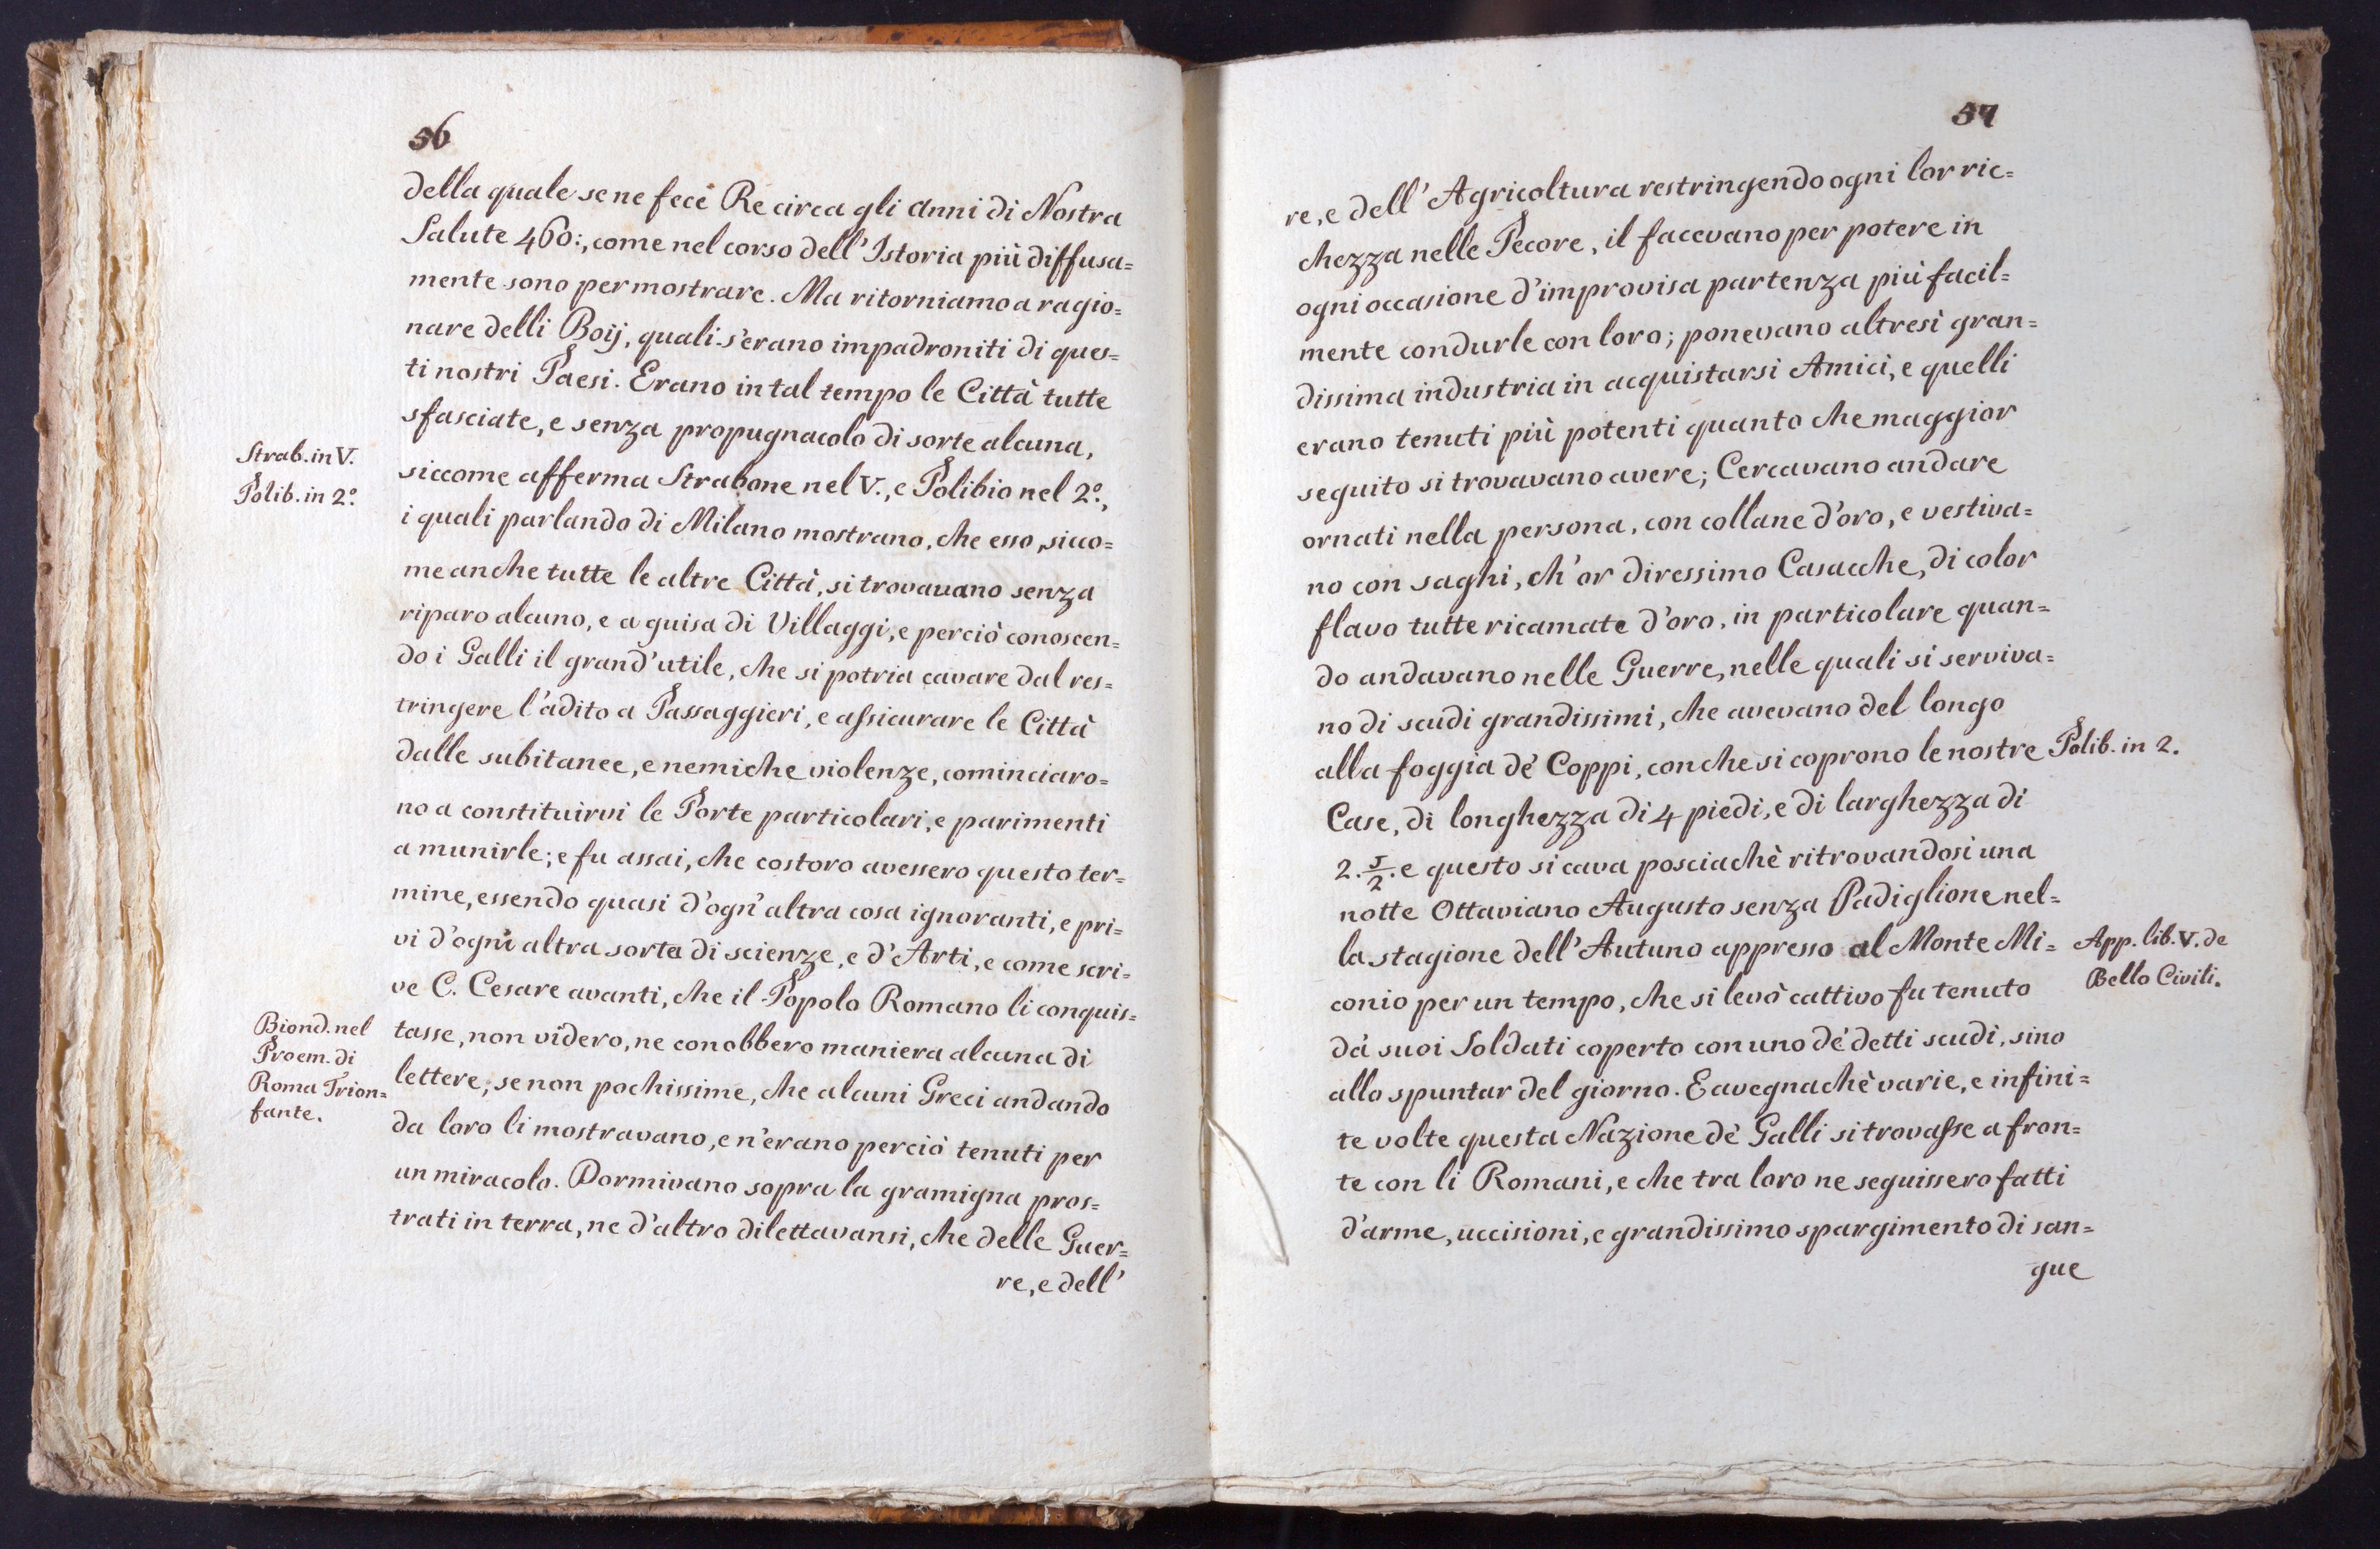 56
della quale se ne fece Re circa gli anni di Nostra
Salute 460:, come nel corso dell'Istoria più diffusa=
mente sono per mostrare. Ma ritorniamo a ragio=
nare delli Boij, quali s'erano impadroniti di ques=
ti nostri Paesi. Erano in tal tempo le Città tutte
sfasciate, e senza propugnacolo di sorte alcuna,
Strab. in V.
siccome afferma Strabone nel V., e Polibio nel 2°.,
Polib. in 2°.
i quali parlando di Milano mostrano, che esso, sicco=
me anche tutte le altre Città, si trovavano senza
riparo alcuno, e a guisa di Villaggi, e perciò conoscen=
do i Galli il grand'utile, che si potria cavare dal res=
tringere l'adito a Passaggieri, e assicurare le Città
dalle subitanee, e nemiche violenze, cominciaro=
no a constituirvi le Porte particolari, e parimenti
a munirle; e fu assai, che costoro avessero questo ter=
mine, essendo quasi d'ogn'altra cosa ignoranti, e pri=
vi d'ogni altra sorta di scienze, e d'Arti, e come scri=
ve C. Cesare avanti, che il Popolo Romano li conquis=
Biond. nel
Proem. di
Roma Trion=
fante.
tasse, non videro, ne conobbero maniera alcuna di
lettere, se non pochissime, che alcuni Greci andando
da loro li mostravano, e n'erano perciò tenuti per
un miracolo. Dormivano sopra la gramigna pros=
trati in terra, ne d'altro dilettavansi, che delle Guer=
re, e dell'
57
re, e dell'Agricoltura restringendo ogni lor ric=
chezza nelle Pecore, il facevano per potere in
ogni occasione d'improvisa partenza più facil=
mente condurle con loro; ponevano altresì gran=
dissima industria in acquistarsi Amici, e quelli
erano tenuti più potenti quanto che maggior
seguito si trovavano avere; Cercavano andare
ornati nella persona, con collane d'oro, e vestiva=
no con saghi, ch'or diressimo Casacche, di color
flavo tutte ricamate d'oro, in particolare quan=
do andavano nelle Guerre, nelle quali si serviva=
no di scudi grandissimi, che avevano del longo
alla foggia de' Coppi, con che si coprono le nostre
Polib. in 2.
Case, di longhezza di 4 piedi, e di larghezza di
2. 5/2. e questo si cava posciachè ritrovandosi una
notte Ottaviano Augusto senza Padiglione nel=
la stagione dell'Autuno appresso al Monte Mi=
App. lib. V. de
Bello Civili.
conio per un tempo, che si levò cattivo fu tenuto
da' suoi Soldati coperto con uno de' detti scudi, sino
allo spuntar del giorno. E avegnachè varie, e infini=
te volte questa Nazione de' Galli si trovasse a fron=
te con li Romani, e che tra loro ne seguissero fatti
d'arme, uccisioni, e grandissimo spargimento di san=
gue